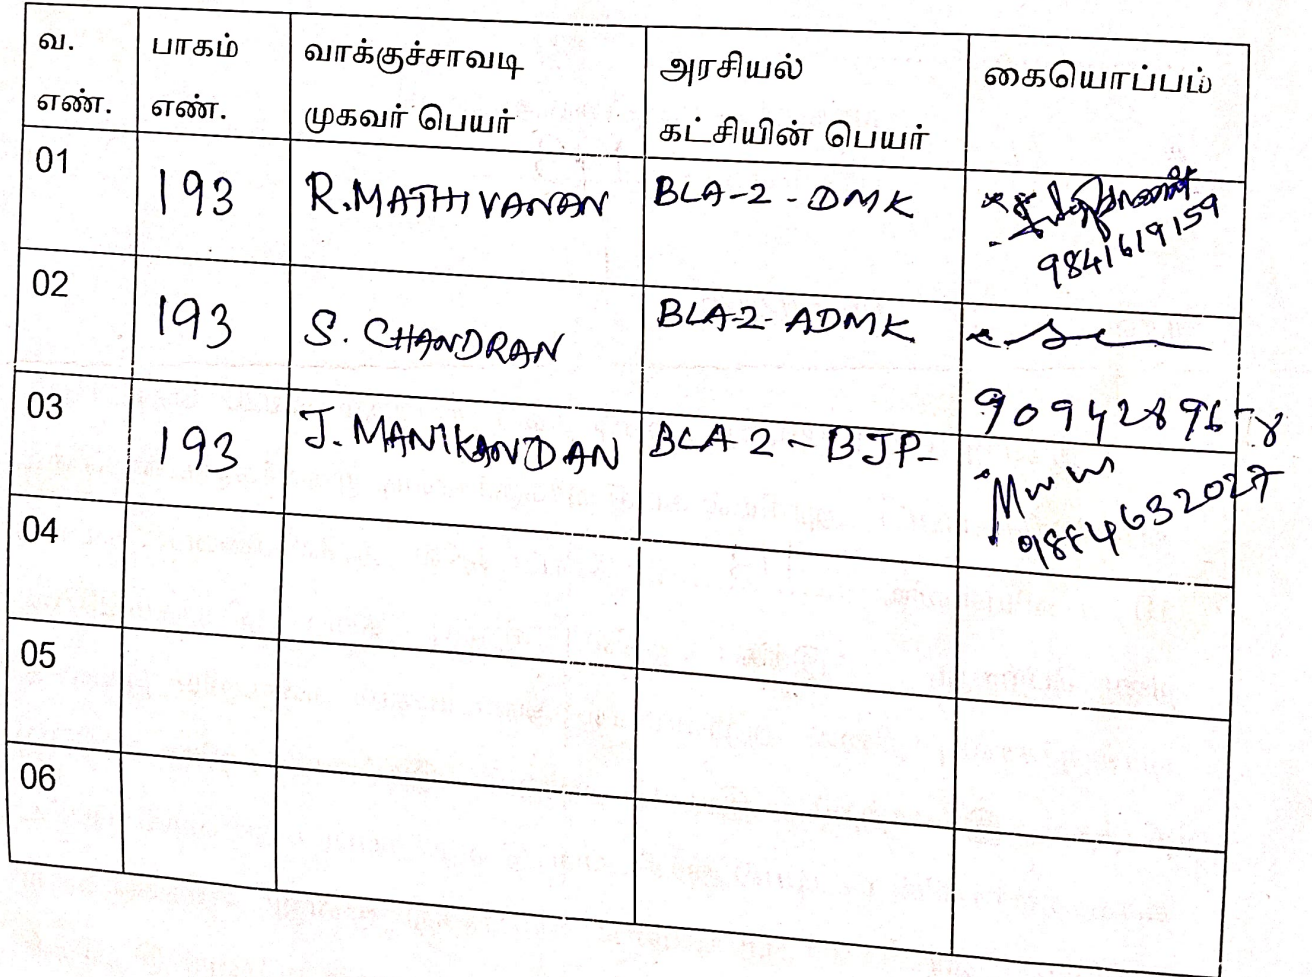 வ. எண். பாகம் எண். வாக்குச்சாவடி முகவர் பெயர் அரசியல் கட்சியின் பெயர் கையொப்பம்
01 193 R.MATHIVANAN BLA-2 - DMK
9841619159
02 193 S. CHANDRAN BLA-2- ADMK
9094289678
03 193 J. MANIKANDAN BLA 2 - BJP-
9884632027
04
05
06